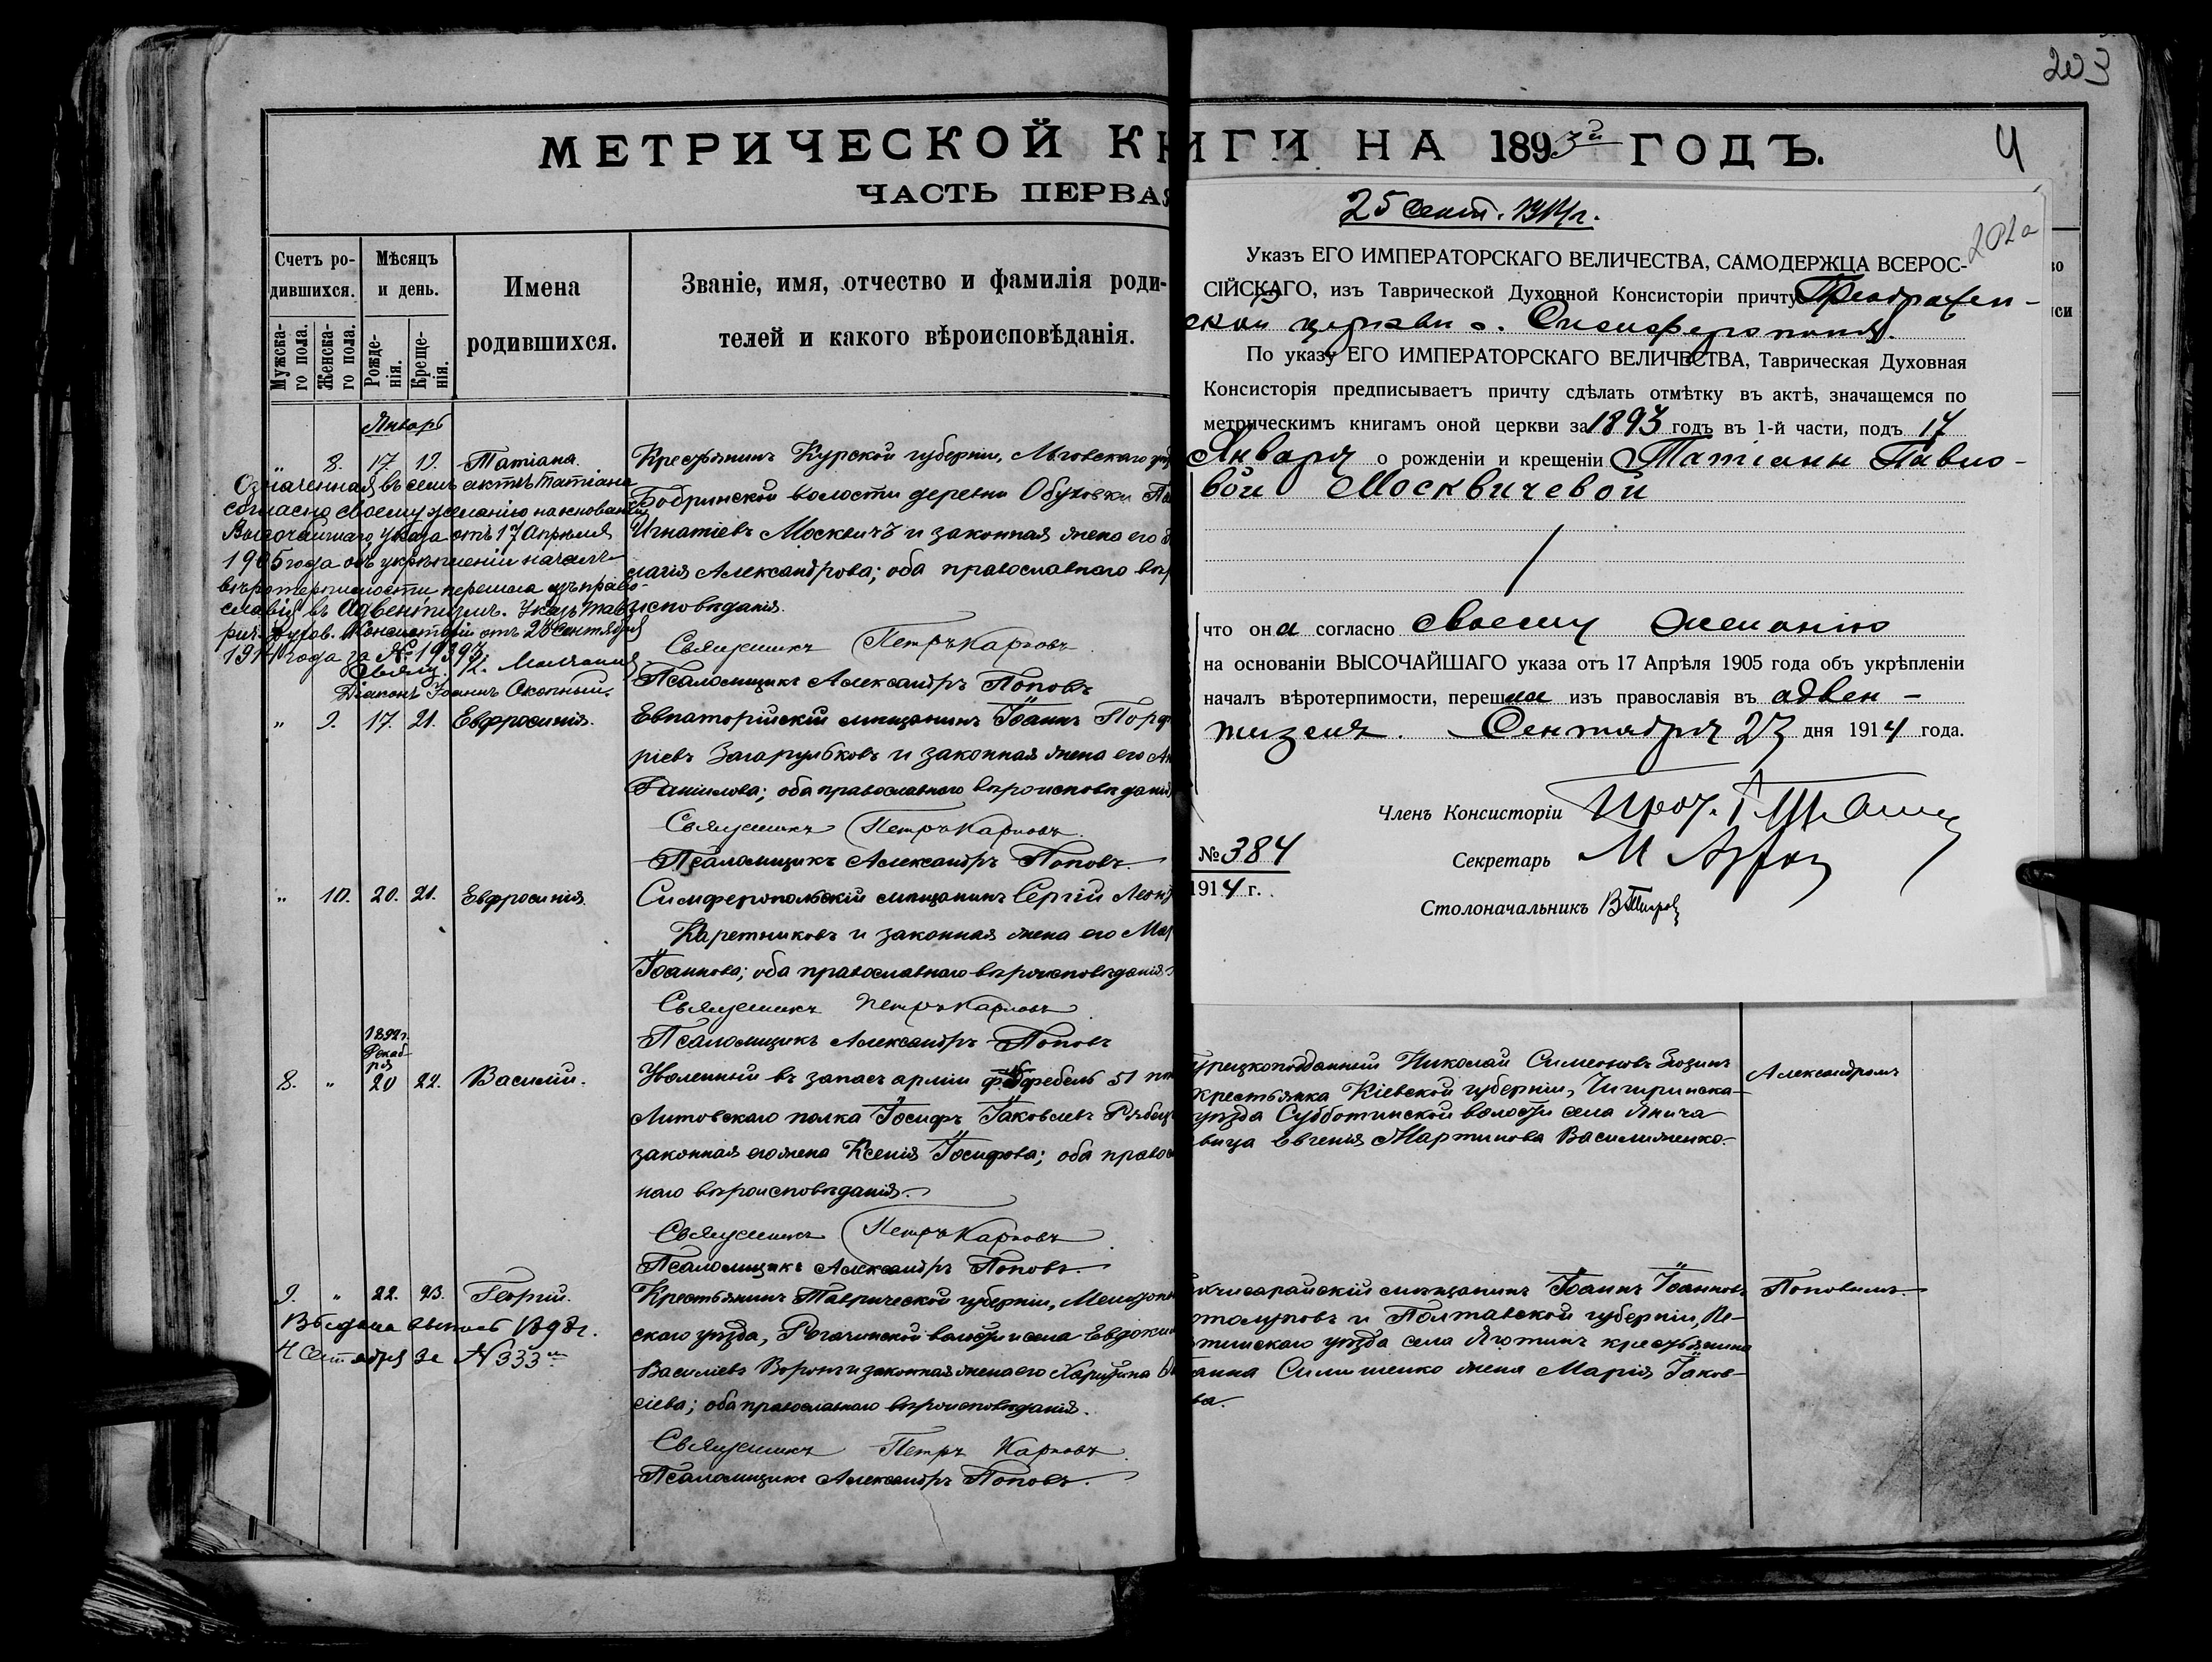 203
МЕТРИЧЕСКОЙ КНИГИ НА 1893й ГОДЪ.
4
ЧАСТЬ ПЕРВАЯ
Счетъ ро-
дившихся.
Мужска-
го пола.
Женска-
го пола.
Мѣсяцъ
и день.
Рожде-
нія.
Креще-
нія.
Имена
родившихся.
Званіе, имя, отчество и фамилія роди-
телей и какого вѣроисповѣданія.
Январь
" 8. 17. 19. Татіана.
Крестьянинъ Курской губерніи, Льговскаго
Бобринской волости деревни Обуховки
Игнатіевъ Москвичъ и законная жена его
лагія Александрова; оба православнаго
исповѣданія.
Священникъ Петръ Карповъ
Псаломщикъ Александръ Поповъ
Означенная въ семъ актѣ Татіана
согласно своему желанію на основаніи
Высочайшаго указа отъ 17 Апрѣля
1905 года объ укрѣпленіи началъ
вѣротерпимости перешла изъ право-
славія въ Адвентизмъ. Указъ Тавр
рич. Духов. Консисторіи отъ 23 Сентября
1914 года за № 19397.
Свящ.
Діаконъ Іоаннъ
" 9. 17. 21. Евфросинія.
Евпаторійскій мѣщанинъ Іоаннъ Порфи
ріевъ Загарульковъ и законная жена его
Даніилова; оба православнаго вѣроисповѣданія
Священникъ Петръ Карповъ
Псаломщикъ Александръ Поповъ
" 10. 20. 21. Евфросинія.
Симферопольскій мѣщанинъ Сергій
Каретниковъ и законная жена его
Іоаннова; оба православнаго вѣроисповѣданія.
Священникъ Петръ Карповъ
Псаломщикъ Александръ Поповъ
1892 г.
Декаб-
ря
8. " 20 22. Василій.
Уволенный въ запасъ арміи фельдфебель 51
Литовскаго полка Іосифъ Іаковлевъ
законная его жена Ксенія Іосифова; оба правос
наго вѣроисповѣданія.
Священникъ Петръ Карповъ
Псаломщикъ Александръ Поповъ.
9. " 22. 23. Георгій.
Выдана выпись 1898 г.
4 Сентября за № 333м
Крестьянинъ Таврической губерніи, Мелитополь
скаго уѣзда, Рогачинской волости и села Евдокимъ
Василіевъ Воронъ и законная жена его Харитина
сіева; оба православнаго вѣроисповѣданія.
Священникъ Петръ Карповъ
Псаломщикъ Александръ Поповъ.
25 Сент. 1914 г.
202а
Указъ ЕГО ИМПЕРАТОРСКАГО ВЕЛИЧЕСТВА, САМОДЕРЖЦА ВСЕРОС-
СІЙСКАГО, изъ Таврической Духовной Консисторіи причту Преображен-
ской церкви г. Симферополя.
По указу ЕГО ИМПЕРАТОРСКАГО ВЕЛИЧЕСТВА, Таврическая Духовная
Консисторія предписываетъ причту сдѣлать отмѣтку въ актѣ, значащемся по
метрическимъ книгамъ оной церкви за 1893 годъ въ 1-й части, подъ 17
Января о рожденіи и крещеніи Татіаны Павло-
вой Москвичевой
что она согласно своему желанію
на основаніи ВЫСОЧАЙШАГО указа отъ 17 Апрѣля 1905 года объ укрѣпленіи
началъ вѣротерпимости, перешла изъ православія въ адвен-
тизмъ. Сентября 23 дня 1914 года.
Членъ Консисторіи Прот.
№ 384
1914 г.
Секретарь
Столоначальникъ
Турецкоподданный Николай Симеоновъ
крестьянка Кіевской губерніи, Чигиринска-
уѣзда Субботинской волости села
вица Евгенія Мартинова Василиженко.
Александромъ
Бахчисарайскій мѣщанинъ Іоаннъ Іоанновъ
и Полтавской губерніи, Пи-
тинскаго уѣзда села Яготинъ крестьянина
анна жена Марія Іаков-
ва.
Поповымъ.